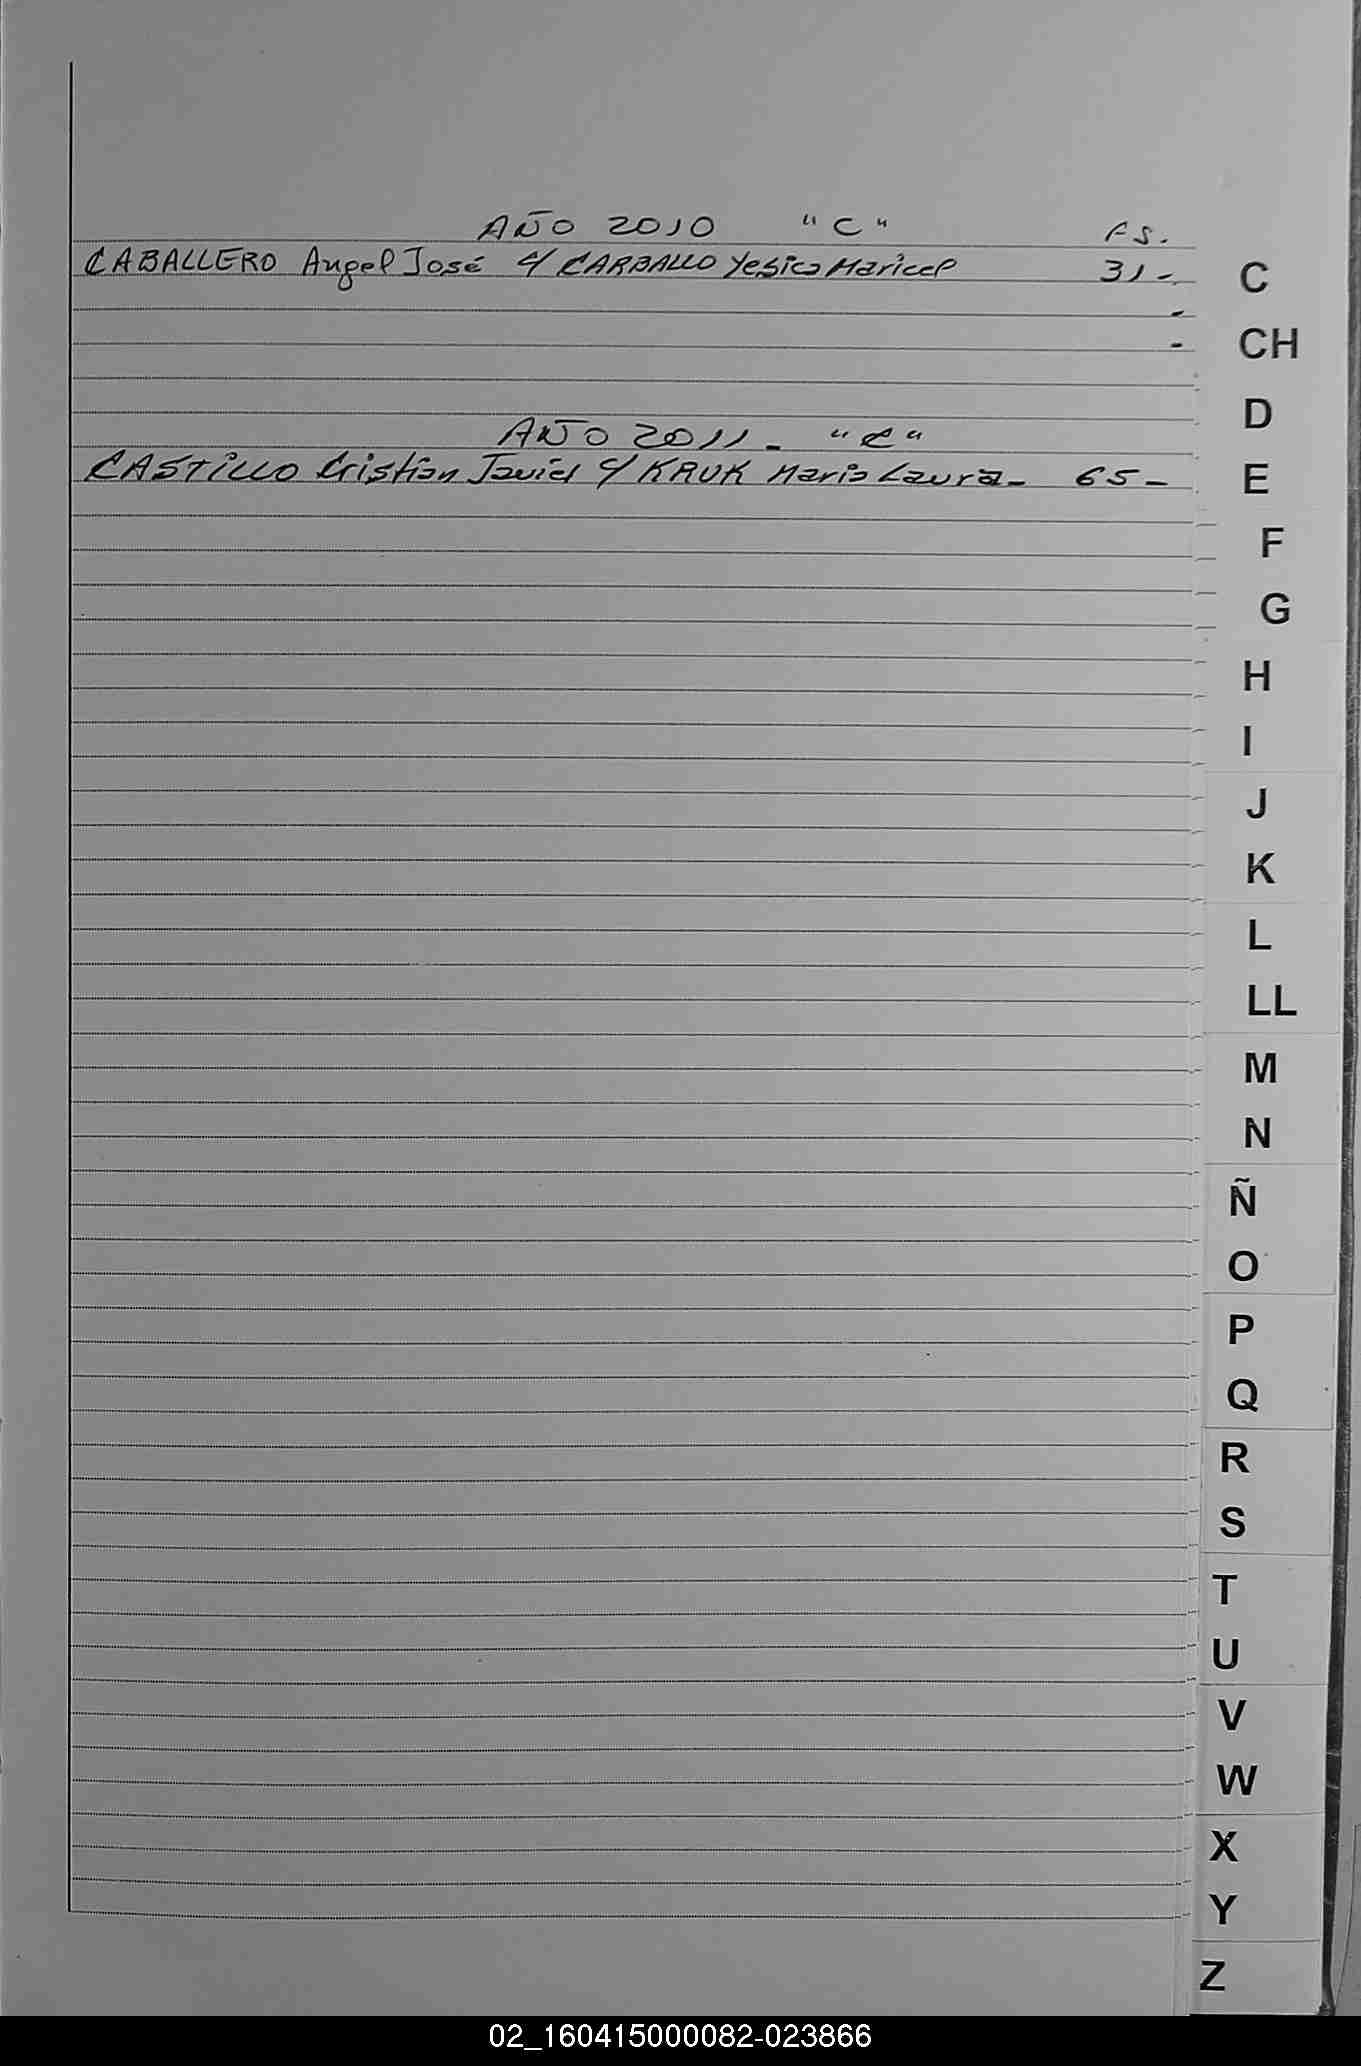 AÑO 2010 "C" FS.
CABALLERO Angel José c/ CARBALLO Yesica Maricel 31-
-
-
AÑO 2011- "C"
CASTILLO Cristian Javier c/ KRUK Maria Laura- 65-
C
CH
D
E
F
G
H
I
J
K
L
LL
M
N
Ñ
O
P
Q
R
S
T
U
V
W
X
Y
Z
02_160415000082-023866